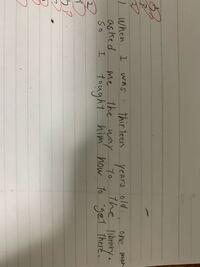 1 When I was thirteen years old one man
asked me the way to the library.
so I tought him how to get there.